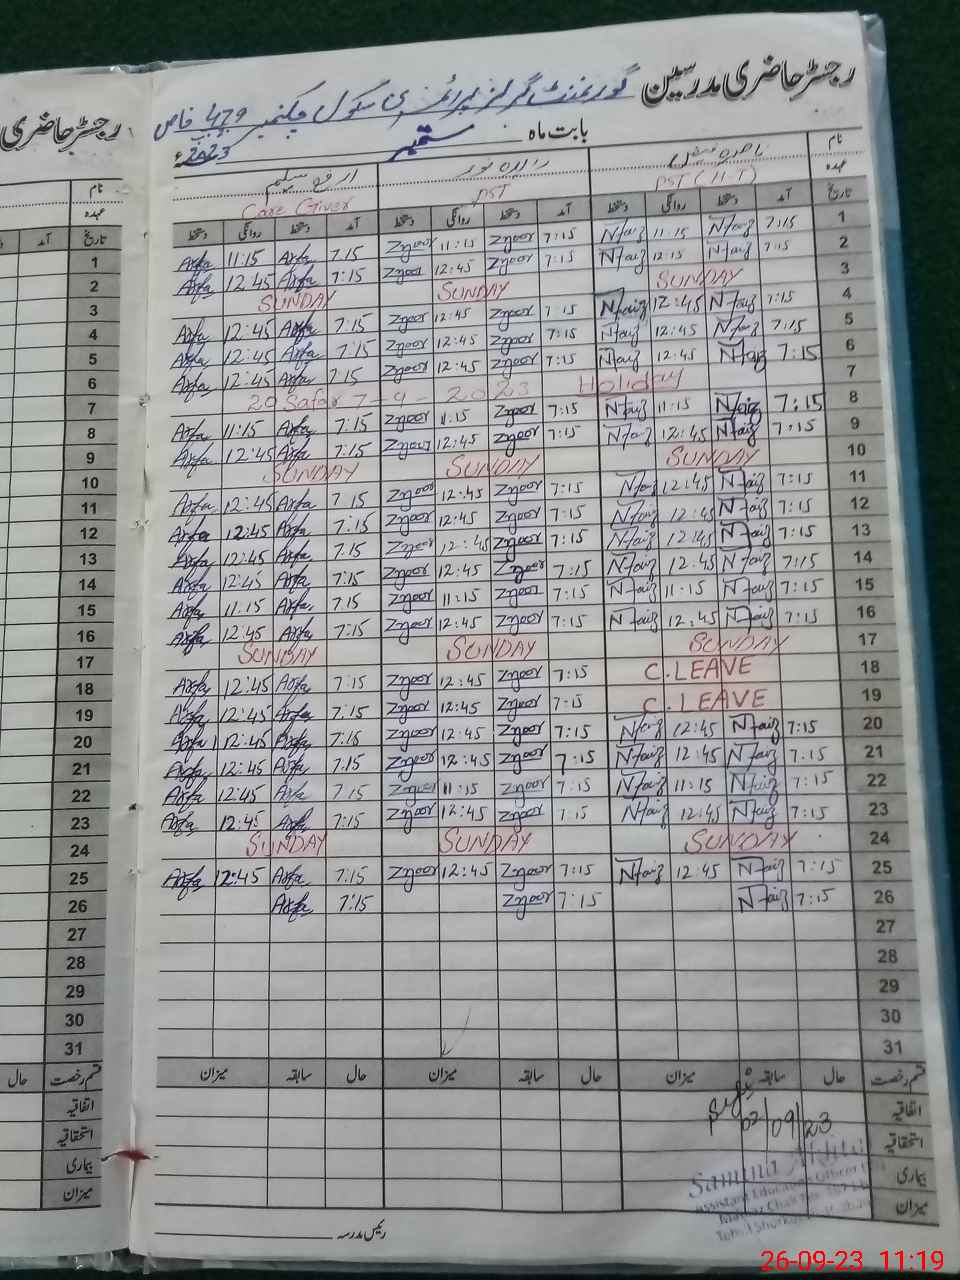 رجسٹر حاضری مدرسین گورنمنٹ گرلز پرائمری سکول چکنمبر 479 خاص
رجسٹر حاضری
بابت ماہ ستمبر 2023ء
نام
عہدہ PST (H-T) PST Care Giver
تاریخ آمد دستخط روانگی دستخط آمد دستخط روانگی دستخط آمد دستخط روانگی دستخط
1 7:15 Nfaiz 11:15 Nfaiz 7:15 Znoor 11:15 Znoor 7:15 Arfa 11:15 Arfa
2 7:15 Nfaiz 12:15 Nfaiz 7:15 Znoor 12:45 Znoor 7:15 Arfa 12:45 Arfa
3 SUNDAY SUNDAY SUNDAY
4 7:15 Nfaiz 12:45 Nfaiz 7:15 Znoor 12:45 Znoor 7:15 Arfa 12:45 Arfa
5 7:15 Nfaiz 12:45 Nfaiz 7:15 Znoor 12:45 Znoor 7:15 Arfa 12:45 Arfa
6 7:15 Nfaiz 12:45 Nfaiz 7:15 Znoor 12:45 Znoor 7:15 Arfa 12:45 Arfa
7 20 Safar 7-9-2023 Holiday
8 7:15 Nfaiz 11:15 Nfaiz 7:15 Znoor 11:15 Znoor 7:15 Arfa 11:15 Arfa
9 7:15 Nfaiz 12:45 Nfaiz 7:15 Znoor 12:45 Znoor 7:15 Arfa 12:45 Arfa
10 SUNDAY SUNDAY SUNDAY
11 7:15 Nfaiz 12:45 Nfaiz 7:15 Znoor 12:45 Znoor 7:15 Arfa 12:45 Arfa
12 7:15 Nfaiz 12:45 Nfaiz 7:15 Znoor 12:45 Znoor 7:15 Arfa 12:45 Arfa
13 7:15 Nfaiz 12:45 Nfaiz 7:15 Znoor 12:45 Znoor 7:15 Arfa 12:45 Arfa
14 7:15 Nfaiz 12:45 Nfaiz 7:15 Znoor 12:45 Znoor 7:15 Arfa 12:45 Arfa
15 7:15 Nfaiz 11:15 Nfaiz 7:15 Znoor 11:15 Znoor 7:15 Arfa 11:15 Arfa
16 7:15 Nfaiz 12:45 Nfaiz 7:15 Znoor 12:45 Znoor 7:15 Arfa 12:45 Arfa
17 SUNDAY SUNDAY SUNDAY
18 C. LEAVE 7:15 Znoor 12:45 Znoor 7:15 Arfa 12:45 Arfa
19 C. LEAVE 7:15 Znoor 12:45 Znoor 7:15 Arfa 12:45 Arfa
20 7:15 Nfaiz 12:45 Nfaiz 7:15 Znoor 12:45 Znoor 7:15 Arfa 12:45 Arfa
21 7:15 Nfaiz 12:45 Nfaiz 7:15 Znoor 12:45 Znoor 7:15 Arfa 12:45 Arfa
22 7:15 Nfaiz 11:15 Nfaiz 7:15 Znoor 11:15 Znoor 7:15 Arfa 12:45 Arfa
23 7:15 Nfaiz 12:45 Nfaiz 7:15 Znoor 12:45 Znoor 7:15 Arfa 12:45 Arfa
24 SUNDAY SUNDAY SUNDAY
25 7:15 Nfaiz 12:45 Nfaiz 7:15 Znoor 12:45 Znoor 7:15 Arfa 12:45 Arfa
26 7:15 Nfaiz 7:15 Znoor 7:15 Arfa
27
28
29
30
31
قسم رخصت حال سابقہ میزان حال سابقہ میزان حال سابقہ میزان
اتفاقیہ
استحقاقیہ
بیماری
میزان
02/09/23
Assistant Education Officer
رئیس مدرسہ
نام
عہدہ
تاریخ آمد
1
2
3
4
5
6
7
8
9
10
11
12
13
14
15
16
17
18
19
20
21
22
23
24
25
26
27
28
29
30
31
قسم رخصت حال
اتفاقیہ
استحقاقیہ
بیماری
میزان
26-09-23 11:19